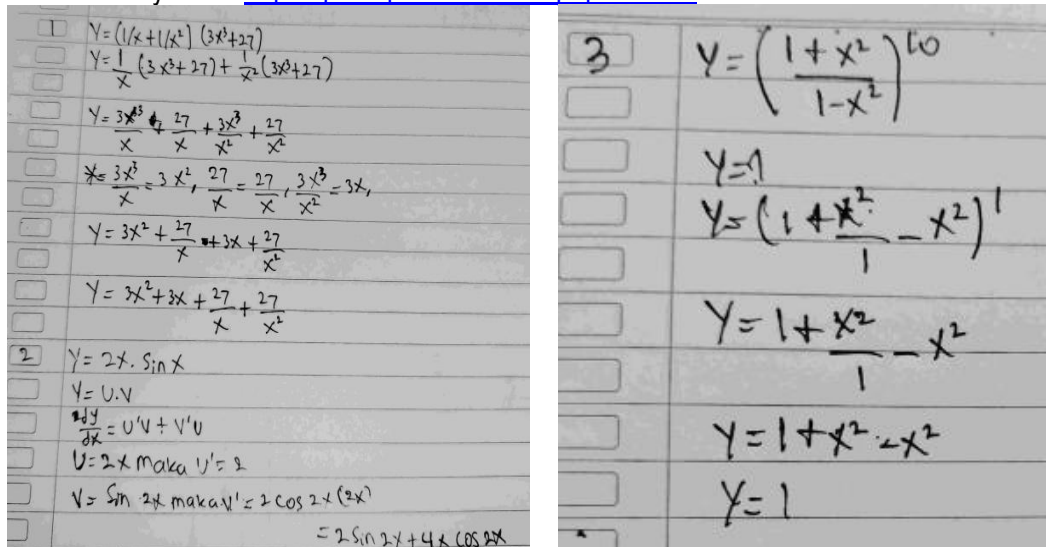 1 Y=(1/x+1/x²) (3x³+27)
Y=1/x (3x³+27)+ 1/x² (3x³+27)
Y= 3x³/x + 27/x + 3x³/x² + 27/x²
x= 3x³/x = 3x², 27/x = 27/x, 3x³/x² = 3x,
Y= 3x² + 27/x + 3x + 27/x²
Y= 3x²+3x + 27/x + 27/x²
2 Y= 2x. Sin x
Y= U.V
dy/dx = U'V + V'U
U= 2x maka U'= 2
V= Sin 2x maka V' = 2 cos 2x (2x)
= 2 Sin 2x + 4x cos 2x
3 Y= (1+x²/1-x²)10
Y=?
Y= (1+x²/1 - x²)1
Y= 1+x²/1 - x²
Y= 1+x²-x²
Y= 1